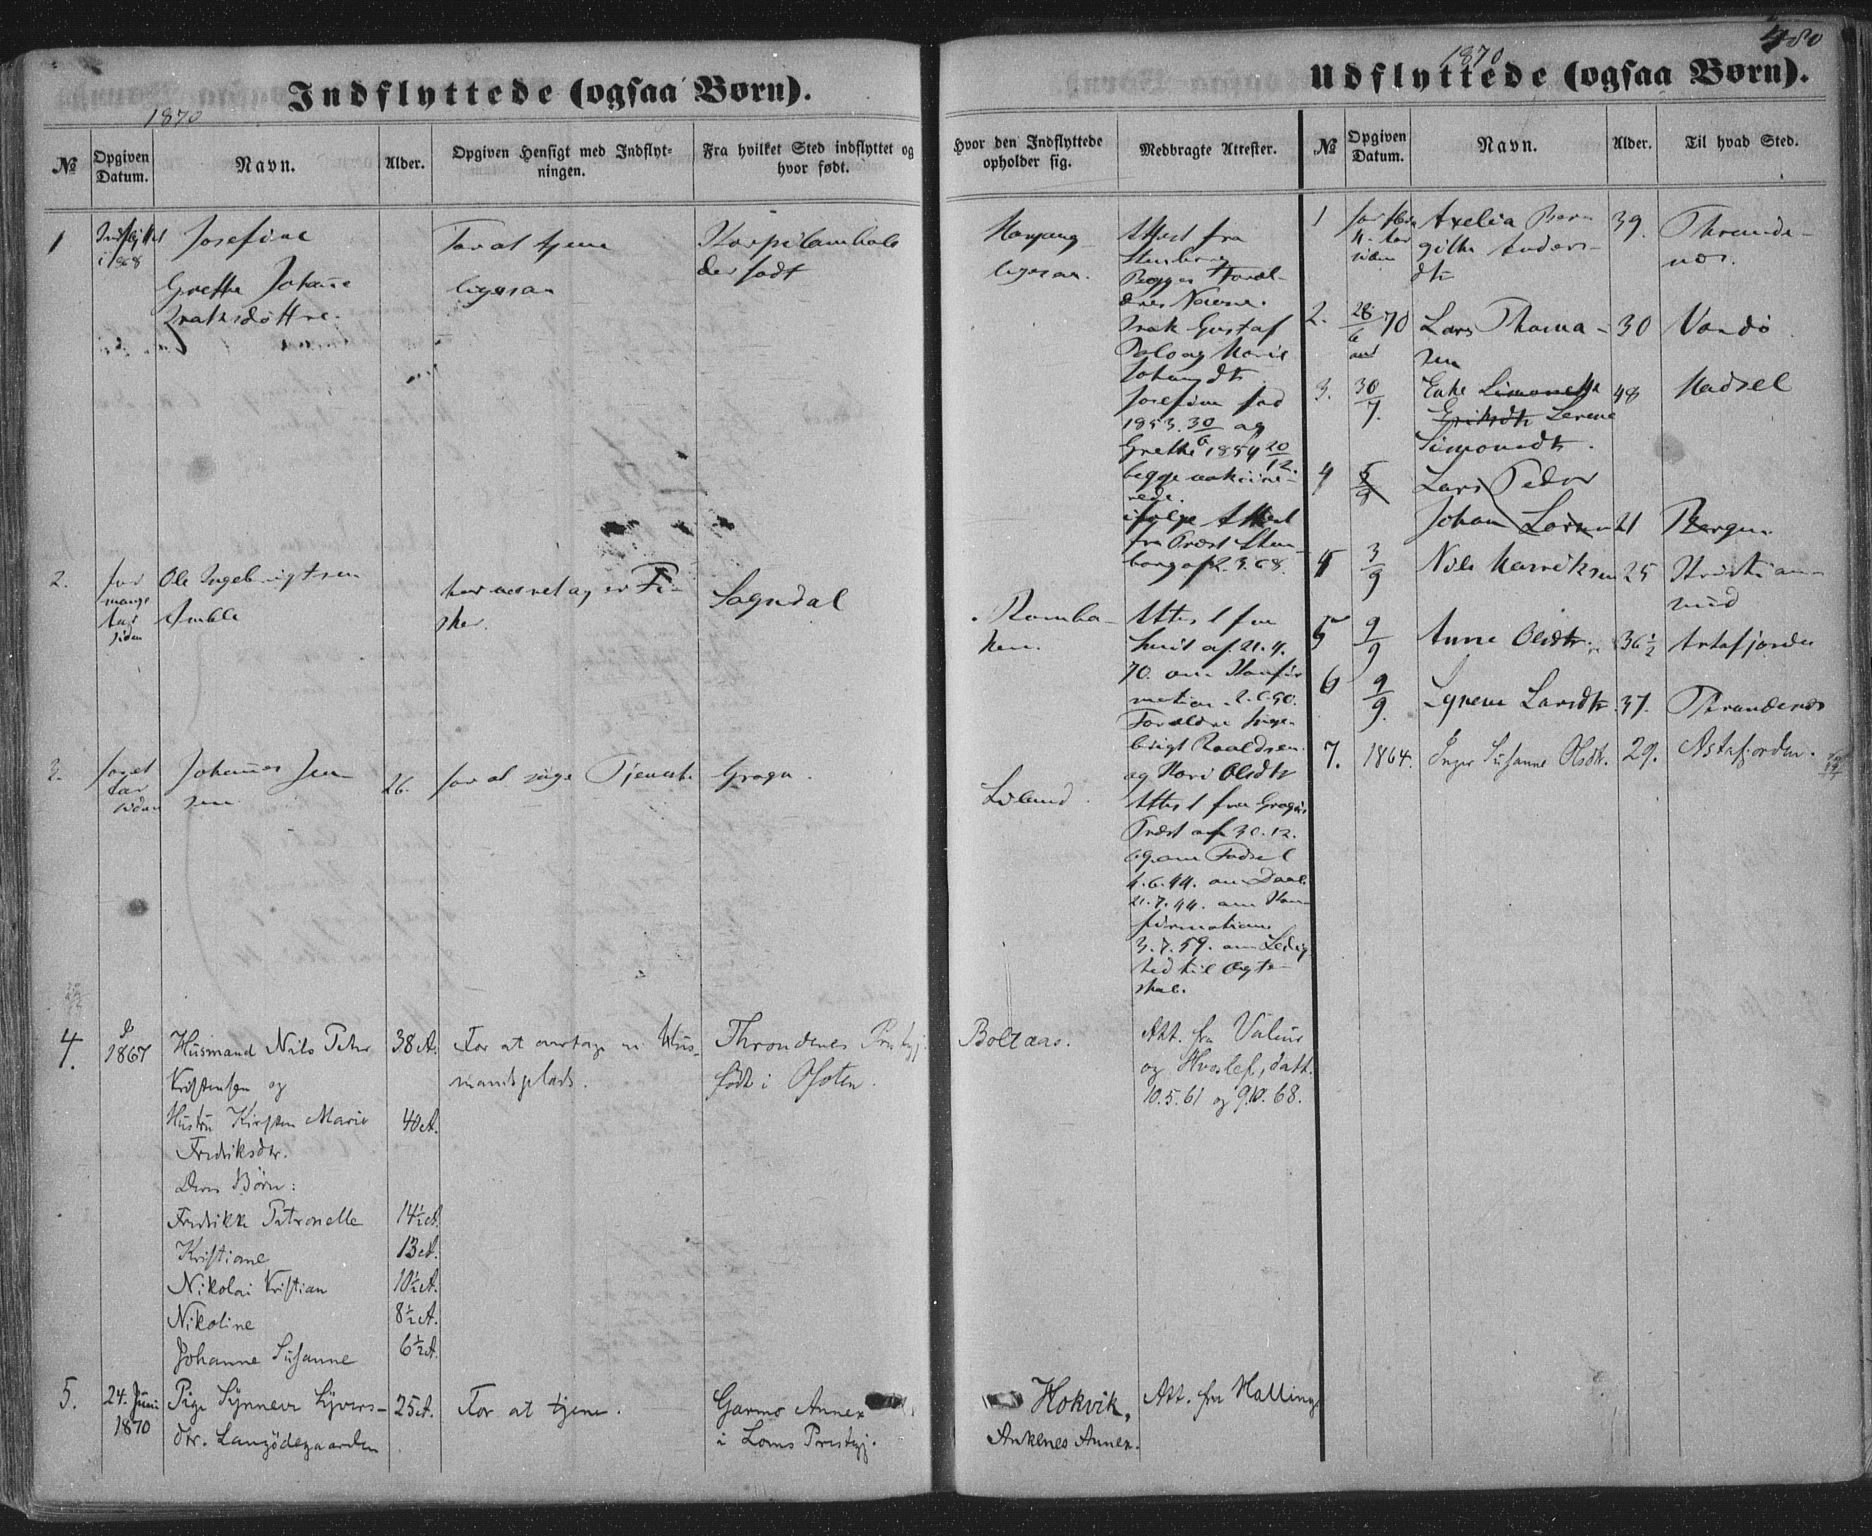 480
Indflyttede (ogsaa Børn).
1870
№
Opgiven Datum.
Navn.
Alder.
Opgiven Hensigt med Indflyt-
ningen.
Fra hvilket Sted indflyttet og
hvor født.
Hvor den Indflyttede
opholder sig.
Medbragte Attester.
1
Indflyttet
i 1868
Josefine
Grethe Johane
For at tjene
ligesaa
Korpilombolo
der født
ligesaa.
Attest fra
Stenborg
Begges Foræl-
dres Navne.
Isak Gustaf
Josefine fød
1853. 30/6 og
Grethe 1854 20/12.
begge vakcine-
rede.
ifølge Attest
fra Præst Sten-
borg af 2.3.68.
2.
for
mange
Aar
siden
Ole Ingebrigtsen
Amble
har været og er Fi-
sker.
Sogndal
Romba-
ken.
Attest fra
af 21.4.
70. om Konfir
mation
Forældre Inge-
brigt Roaldsen
og Kari Olsdtr
3.
Aar
siden
Johannes Jen
sen
26.
for at søge Tjeneste
Grogn.
Liland.
Attest fra
Præst af 30.12.
69. om Fødsel
4.6.44. om Daab
21.7.44. om Kon-
firmation
3.7.59. om Ledig
hed til Ægte-
skab.
4.
I
1867
Husmand Nils Peter
Kristensen og
Hustru Kirsten Marie
Fredriksdtr.
Deres Børn:
Fredrikke Petronelle
Kristiane
Nikolai Kristian
Nikoline
Johanne Susanne
38 A.
40 A.
14½ A.
13 A.
10½ A.
8½ A.
6½ A.
For at overtage en Hus-
mandsplads.
Throndenes Prstgj.
født i Ofoten.
Boltaas.
Att. fra Valeur
og Hvoslef, datt.
10.5.61 og 9.10.68.
5.
24. Juni
1870
Pige Synneve Syvers-
dtr. Langødegaarden
25 A.
For at tjene.
Garmo Annex
i Loms Prestgj.
Hokvik,
Ankenes Annex.
Att. fra Halling
Udflyttede (ogsaa Børn).
1870
№
Opgiven Datum.
Navn.
Alder.
Til hvad Sted.
1
Axelia Bern
githa Anders-
dtr
39.
Thronde-
nes.
2.
28/6 70
Lars Thoma-
sen
30
Vandø
3.
30/7.
Enke Simonette
Eriksdtr Lerene
Simonsdtr.
48
Hadsel
4
5/9
Lars Peder
Johan Larsen
21
Bergen
4
3/9
Nils Henriksen
25
Kristian-
sund
5
9/9
Anne Olsdtr.
36½
Astafjorden
6
9/9.
Larsdtr.
37.
Throndenes
7.
1864.
Inger Susanne Olsdtr.
29.
Astafjorden.